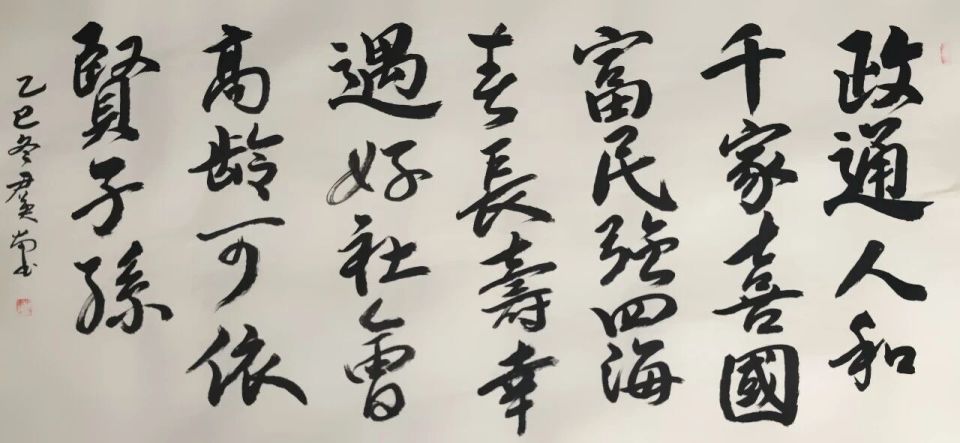 政通人和
千家喜國
富民强四海
春長壽幸
遇好社會
高龄可依
賢子孫
乙巳冬君英尚书